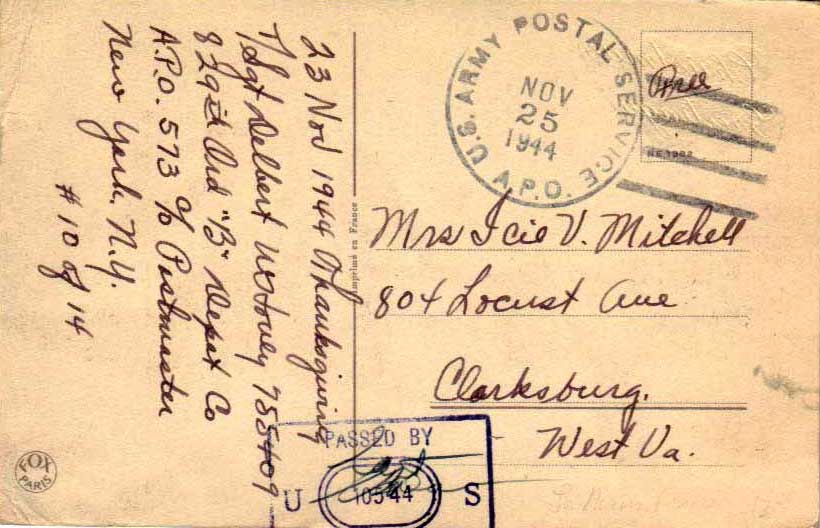 23 Nov 1944 Thanksgiving
T/Sgt Delbert 755409
829th Ord "B" Depot Co
A.P.O. 573 c/o Postmaster
New York. N.Y.
#10 of 14
Imprimé en France
U.S. ARMY POSTAL SERVICE
NOV
25
1944
A.P.O.
Free
Mrs Icie V. Mitchell
804 Locust Ave
Clarksburg.
West Va.
PASSED BY
U 10544 S
FOX
PARIS